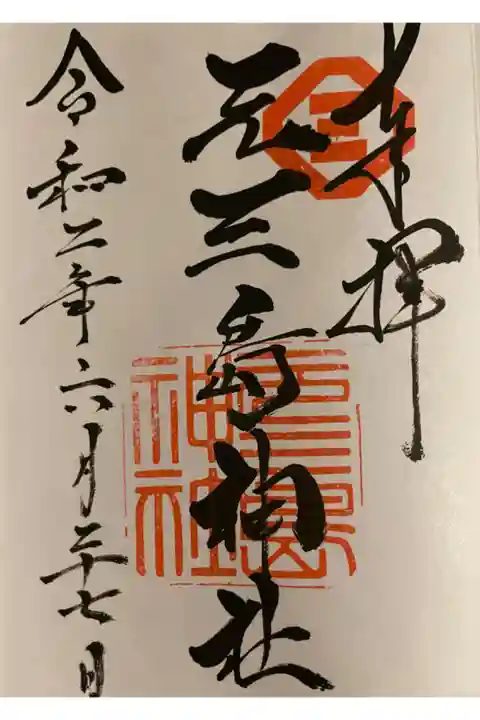 奉拝
元三島神社
三
元三島神社
令和二年六月二十七日